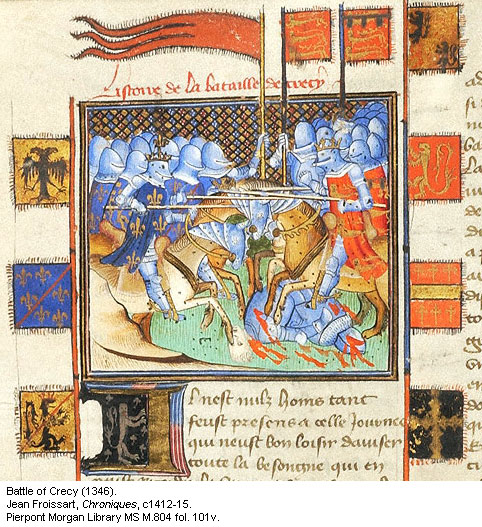 Listoire de la bataille de crecy
Il nest nulz homs tant
feust presens a celle Journee
qui neust bon loisir daviser
toute la besongne qui en
Battle of Crecy (1346).
Jean Froissart, Chroniques, c1412-15.
Pierpont Morgan Library MS M.804 fol. 101v.